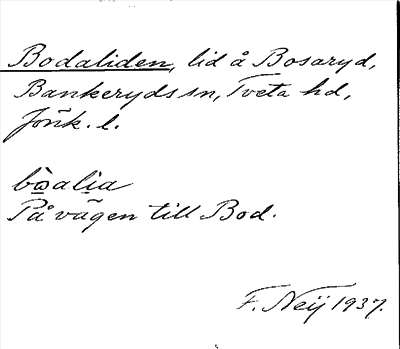 Bodaliden, lid å Bosaryd,
Bankeryds sn, Tveta hd,
Jönk. l.
bo̱salia
På vägen till Bod.
F. Neij 1937.